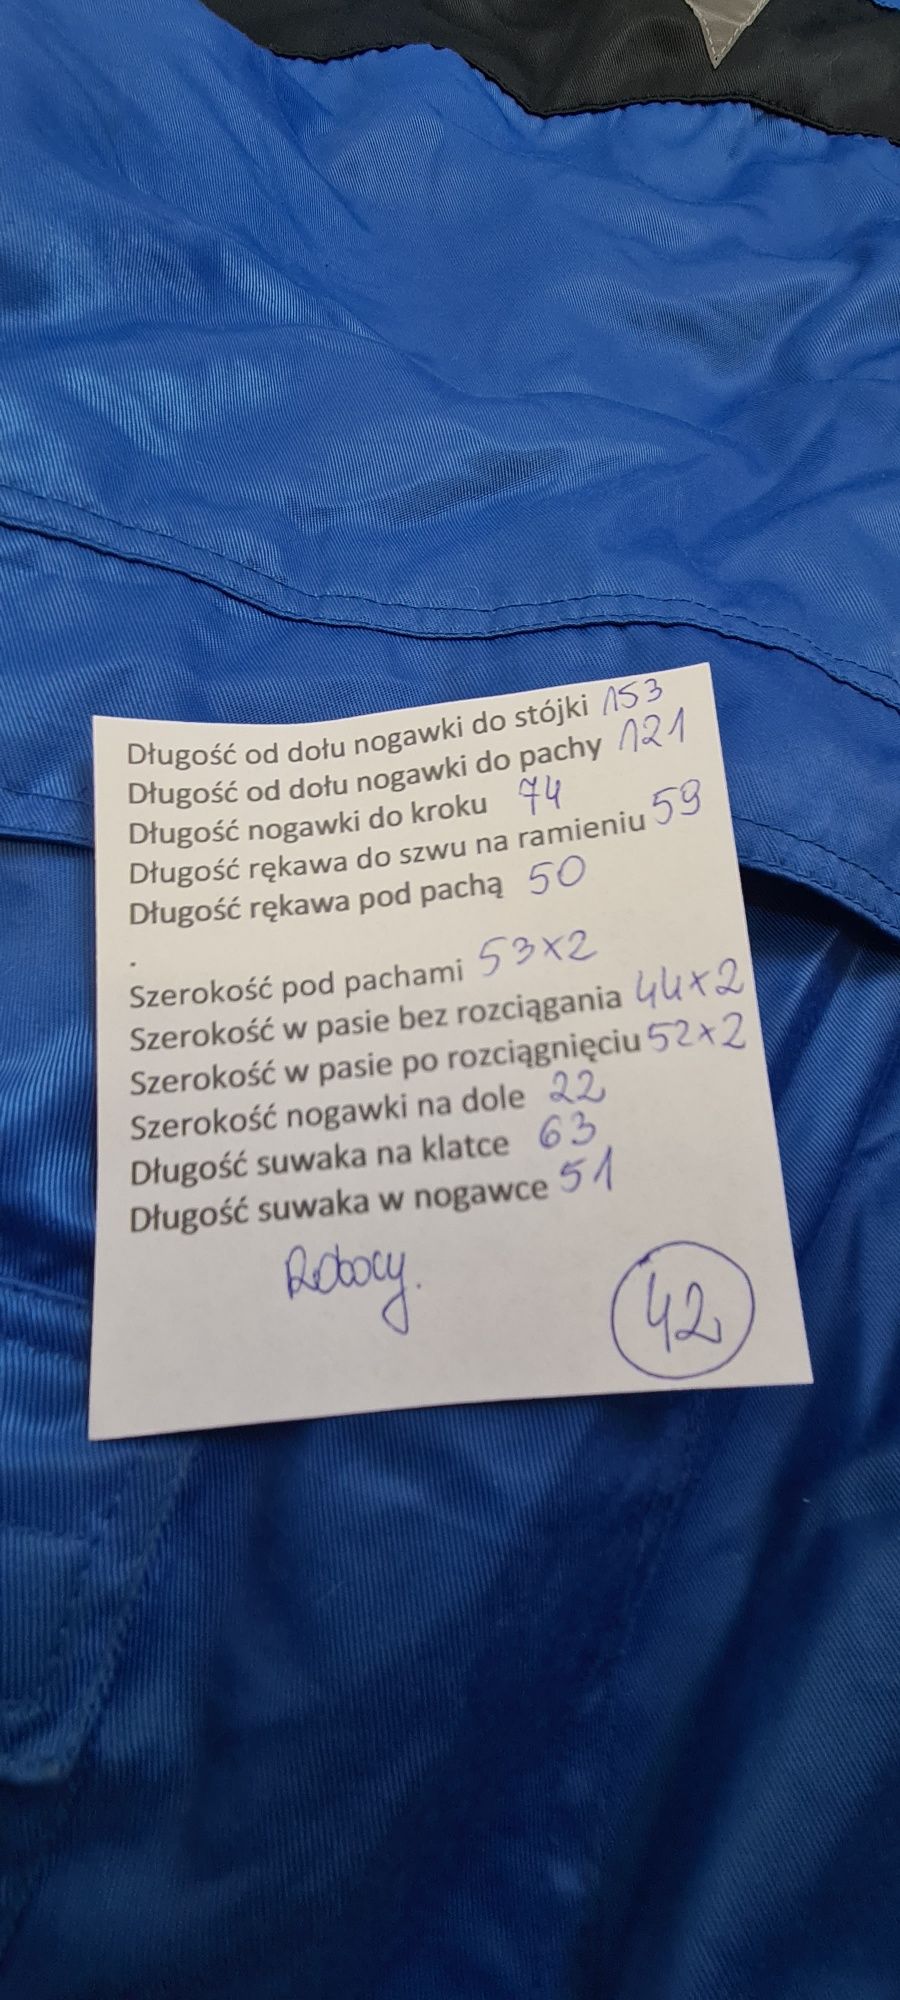 Długość od dołu nogawki do stójki 153
Długość od dołu nogawki do pachy 121
Długość nogawki do kroku 74
Długość rękawa do szwu na ramieniu 59
Długość rękawa pod pachą 50
.
Szerokość pod pachami 53x2
Szerokość w pasie bez rozciągania 44x2
Szerokość w pasie po rozciągnięciu 52x2
Szerokość nogawki na dole 22
Długość suwaka na klatce 63
Długość suwaka w nogawce 51
Robocy.
42